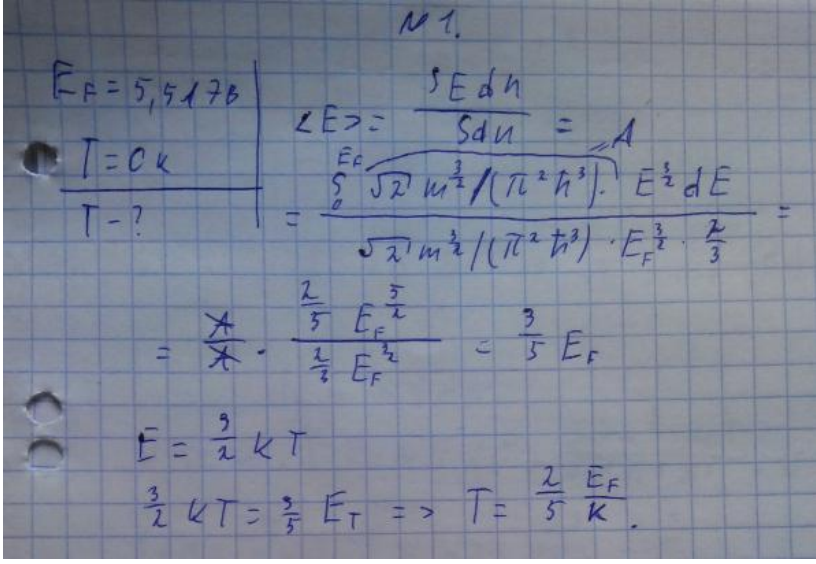 № 1.
E_F = 5,51 7в
T = 0 к
T - ?
<E> = ∫E dn / ∫dn =
= ∫₀^{E_F} √2 m^{3/2}/(π²ħ³) · E^{3/2} dE / √2 m^{3/2}/(π²ħ³) · E_F^{3/2} · 2/3 =
= A
= A/A · 2/5 E_F^{5/2} / 2/3 E_F^{3/2} = 3/5 E_F
E = 3/2 kT
3/2 kT = 3/5 E_T => T = 2/5 E_F/K.